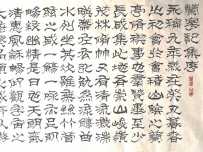 永和九年歲在癸丑暮春
之初會于會稽山陰之蘭
亭脩禊事也群賢畢至少
長咸集此地有崇山峻領
茂林脩竹又有清流激湍
映帶左右引以為流觴曲
水列坐其次雖無絲竹管
弦之盛一觴一詠亦足以
暢敘幽情是日也天朗氣
清惠風和暢仰觀宇宙之
大俯察品類之盛所以